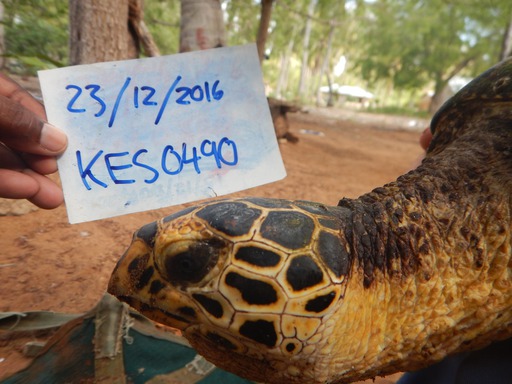 23/12/2016
KES0490